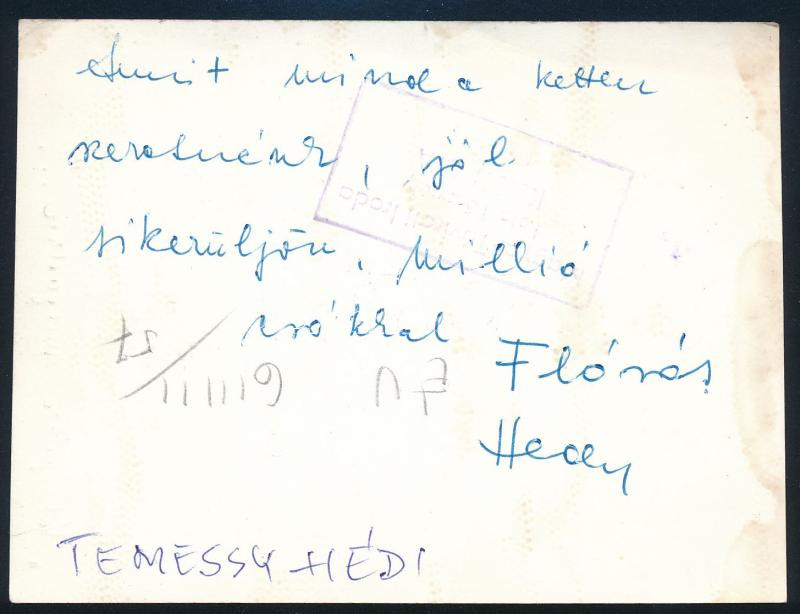 Amit mind a ketten
szeretnénk, jól
sikerüljön, millió
csókkal
Flórás
Hedy
TEMESSY HÉDI